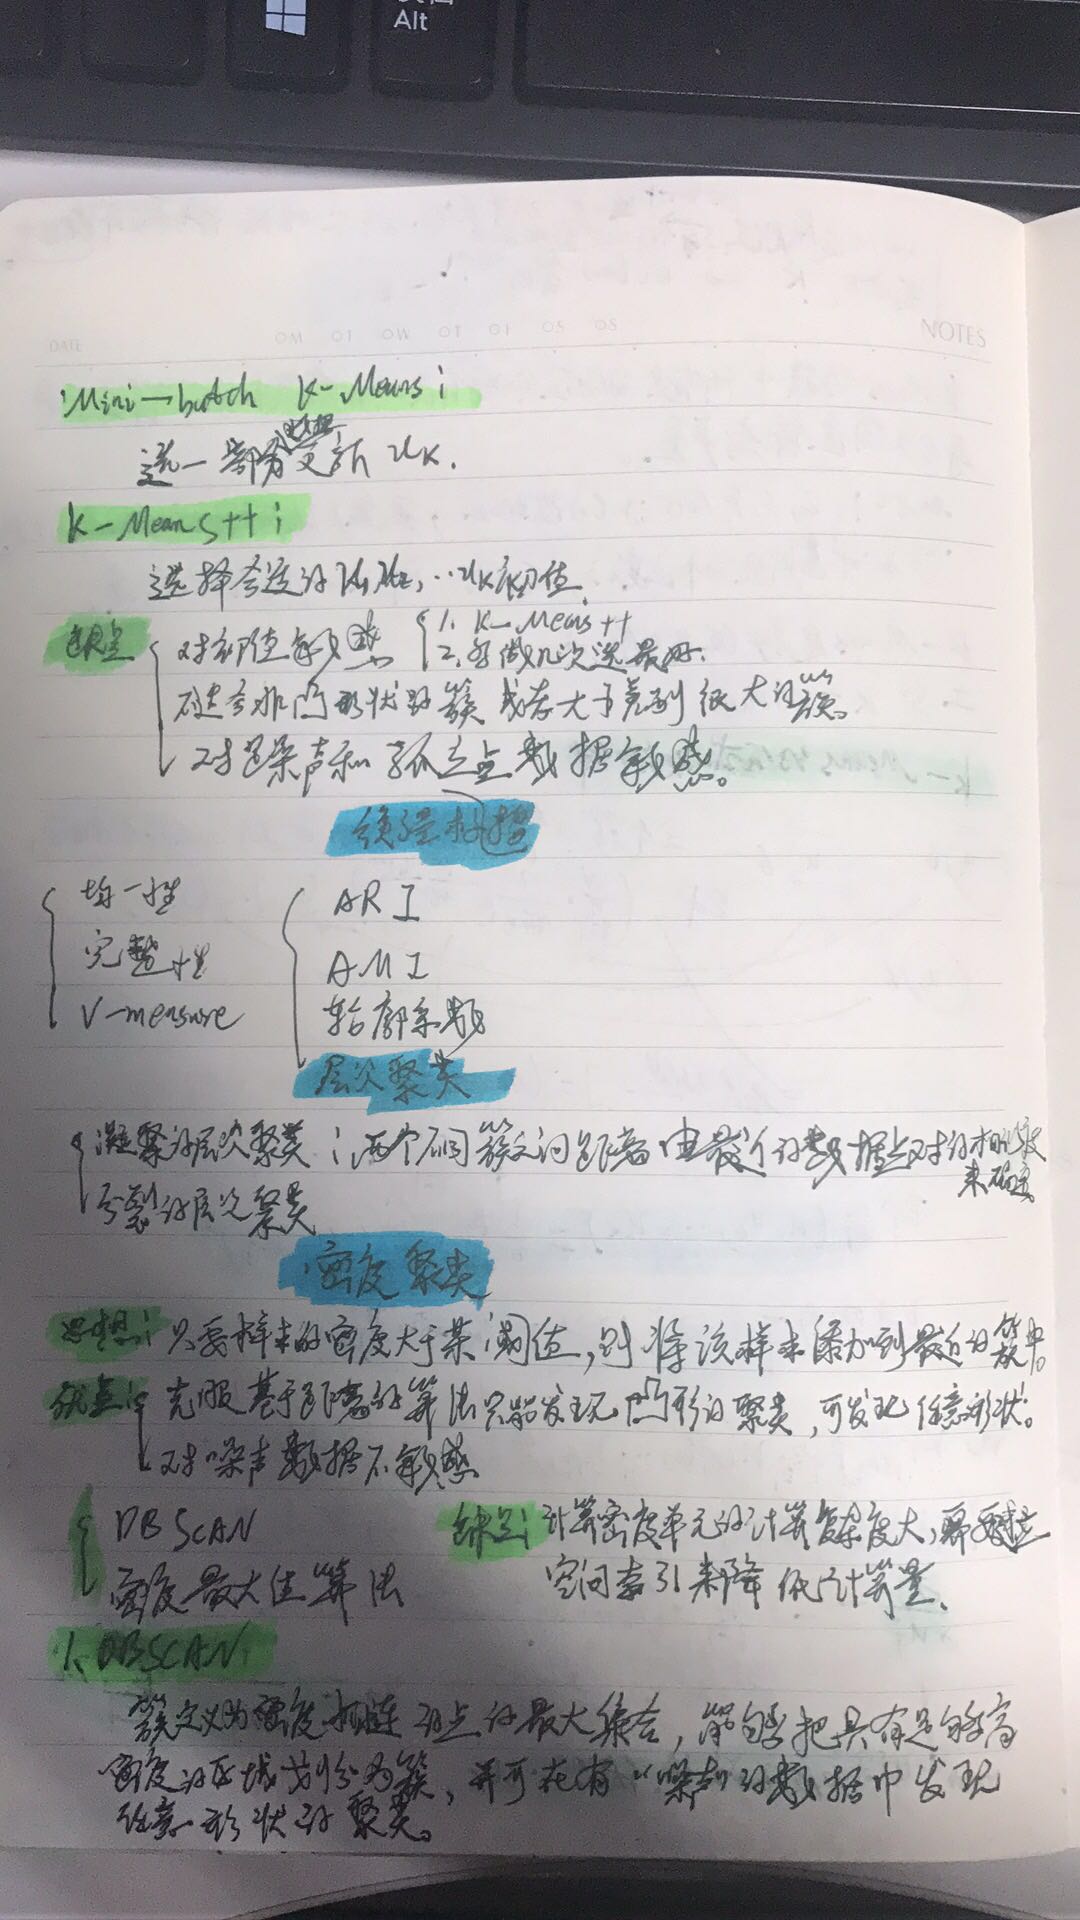 Alt
DATE
MO TO WO TO FO SO SO
NOTES
Mini-batch K-Means:
选一部分数据更新 uk.
K-Means++:
选择合适的u1,u2,…uk初值.
缺点 对初值敏感 1. K-Means++
2.多做几次选最好.
不适合非凸形状的簇或者大小差别很大的簇。
对噪声和孤立点数据敏感。
衡量指标
均一性
完整性
V-measure
ARI
AMI
轮廓系数
层次聚类
凝聚的层次聚类:两个不同簇之间距离由最近的数据点对的相似度
来确定
分裂的层次聚类
密度聚类
思想:只要样本的密度大于某阈值,则将该样本添加到最近的簇中。
优点:克服基于距离的算法只能发现凸形的聚类,可发现任意形状。
对噪声数据不敏感
DBSCAN
密度最大值算法
缺点:计算密度单元的计算复杂度大,需要建立
空间索引来降低计算量.
1、DBSCAN:
簇定义为密度相连的点的最大集合,能够把具有足够高
密度的区域划分为簇,并可在有“噪声”的数据中发现
任意形状的聚类。